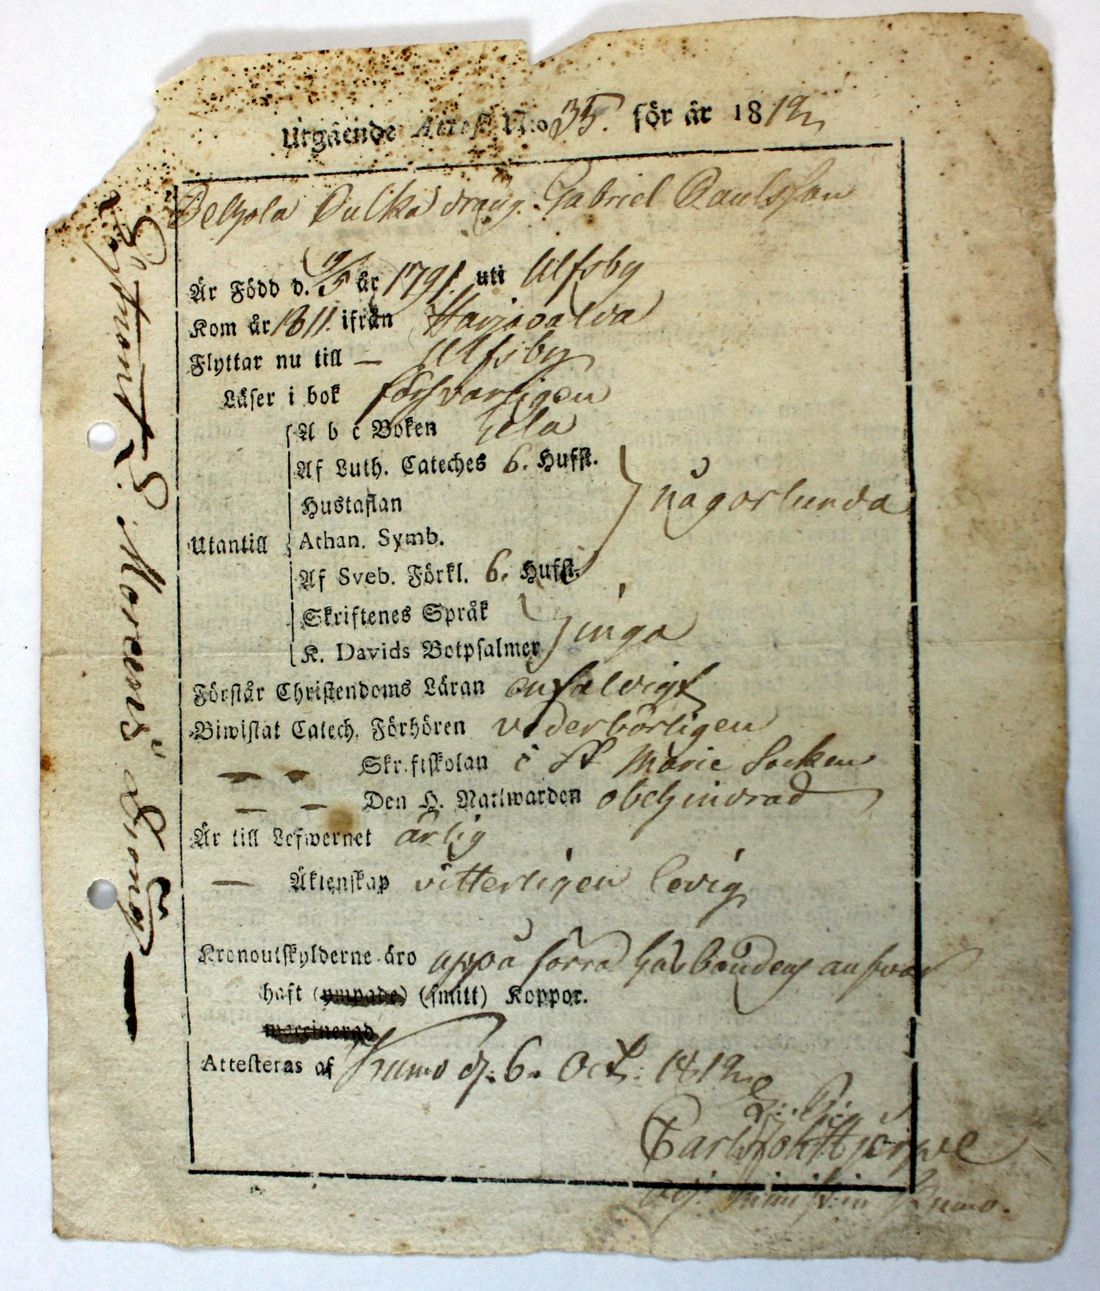 Utgående Attest N:o 35. för år 1812
Pulka dräng. Gabriel Paulsson
Är Född d. 19/5 år 1791. uti Ulfsby
Kom år 1811. ifrån Harjavalda
Flyttar nu till — Ulfsby
Läser i bok försvarligen
Utantill
A b c Boken hela
Af Luth. Cateches 6. Hufst.
Hustaflan
någorlunda
Athan. Symb.
Af Sveb. Förkl. 6. Hufst.
Skriftenes Språk
inga
K. Davids Botpsalmer
Förstår Christendoms Läran enfaldigt
Biwistat Catech. Förhören vederbörligen
— — Skriftskolan i St Marie Socken
— — Den H. Nattwarden obehindrad
Är till Lefwernet ärlig
— Äktenskap vitterligen ledig
Kronoutskylderne äro uppå förra husbondens ansvar
haft (ympade) (smitt) Koppor.
Attesteras af Kumo d. 6. Oct. 1812
Carl Joh Hjörpe
Kumo.